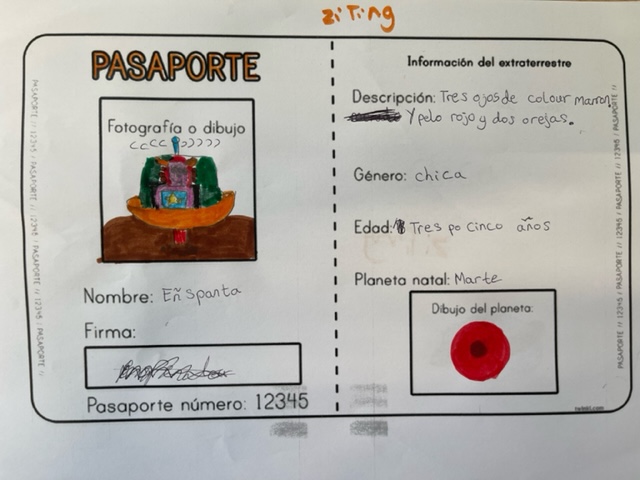 ziTing
PASAPORTE
Fotografía o dibujo
Nombre: Eñspanta
Firma:
Pasaporte número: 12345
Información del extraterrestre
Descripción: Tres ojos de colour marron.
Y pelo rojo y dos orejas.
Género: chica
Edad: Tres po cinco años
Planeta natal: Marte
Dibujo del planeta:
twinkl.com
PASAPORTE // 12345 // PASAPORTE // 12345 // PASAPORTE // 12345 // PASAPORTE //
PASAPORTE // 12345 // PASAPORTE // 12345 // PASAPORTE // 12345 // PASAPORTE //